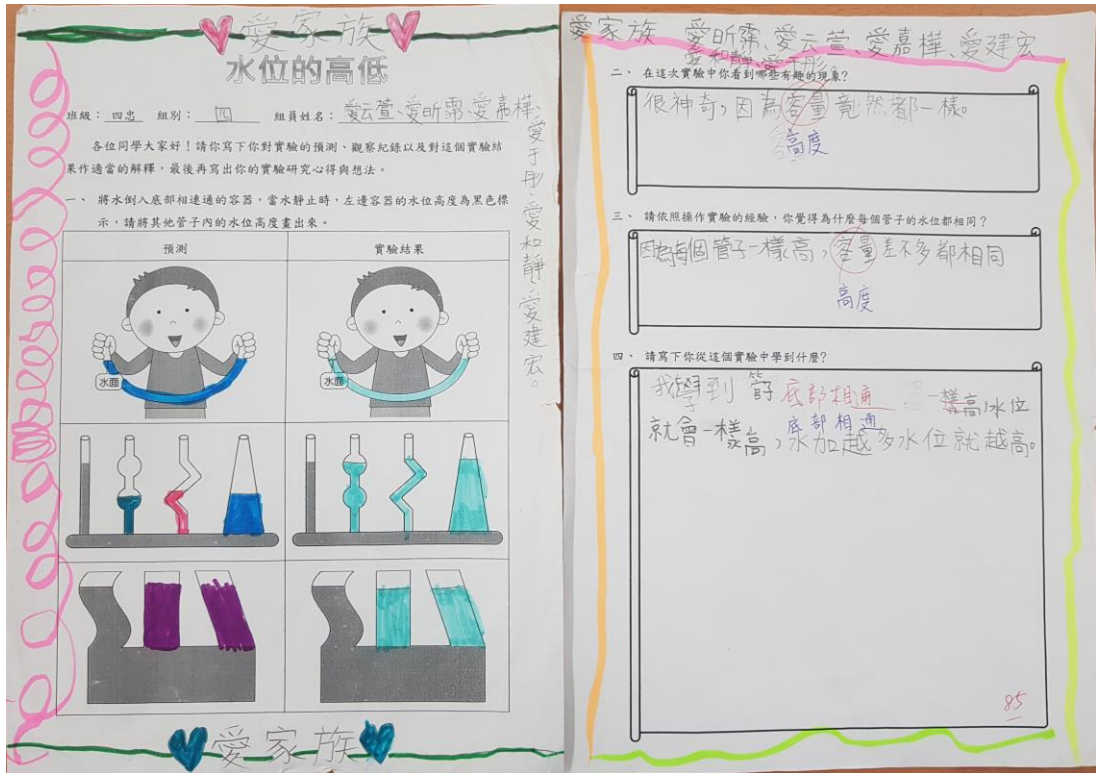 愛家族
水位的高低
班級：四忠 組別：四 組員姓名：愛云萱、愛昕霈、愛嘉樺、
愛于彤、愛和靜、愛建宏。
各位同學大家好！請你寫下你對實驗的預測、觀察紀錄以及對這個實驗結
果作適當的解釋，最後再寫出你的實驗研究心得與想法。
一、 將水倒入底部相連通的容器，當水靜止時，左邊容器的水位高度為黑色標
示，請將其他管子內的水位高度畫出來。
預測 實驗結果
水面 水面
愛家族
愛家族 愛昕霈、愛云萱、愛嘉樺、愛建宏
愛和靜、愛于彤。
二、 在這次實驗中你看到哪些有趣的現象？
很神奇，因為容量竟然都一樣。
高度
三、 請依照操作實驗的經驗，你覺得為什麼每個管子的水位都相同？
因為每個管子一樣高，容量差不多都相同
高度
四、 請寫下你從這個實驗中學到什麼？
我學到 管子 底部相通 一樣高，水位
底部相通
就會一樣高，水加越多水位就越高。
85